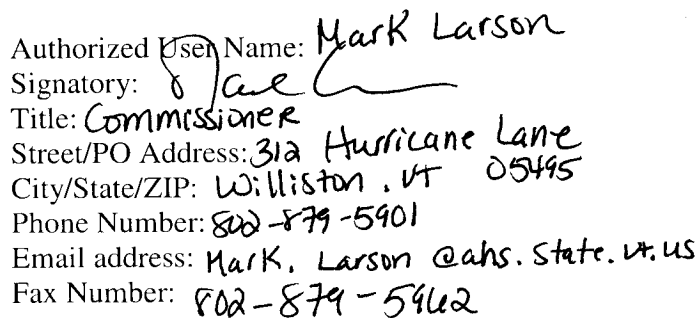 Authorized User Name: Mark Larson
Signatory:
Title: Commissioner
Street/PO Address: 312 Hurricane Lane
City/State/ZIP: Williston, VT 05495
Phone Number: 802-879-5901
Email address: Mark.Larson@ahs.state.vt.us
Fax Number: 802-879-5962